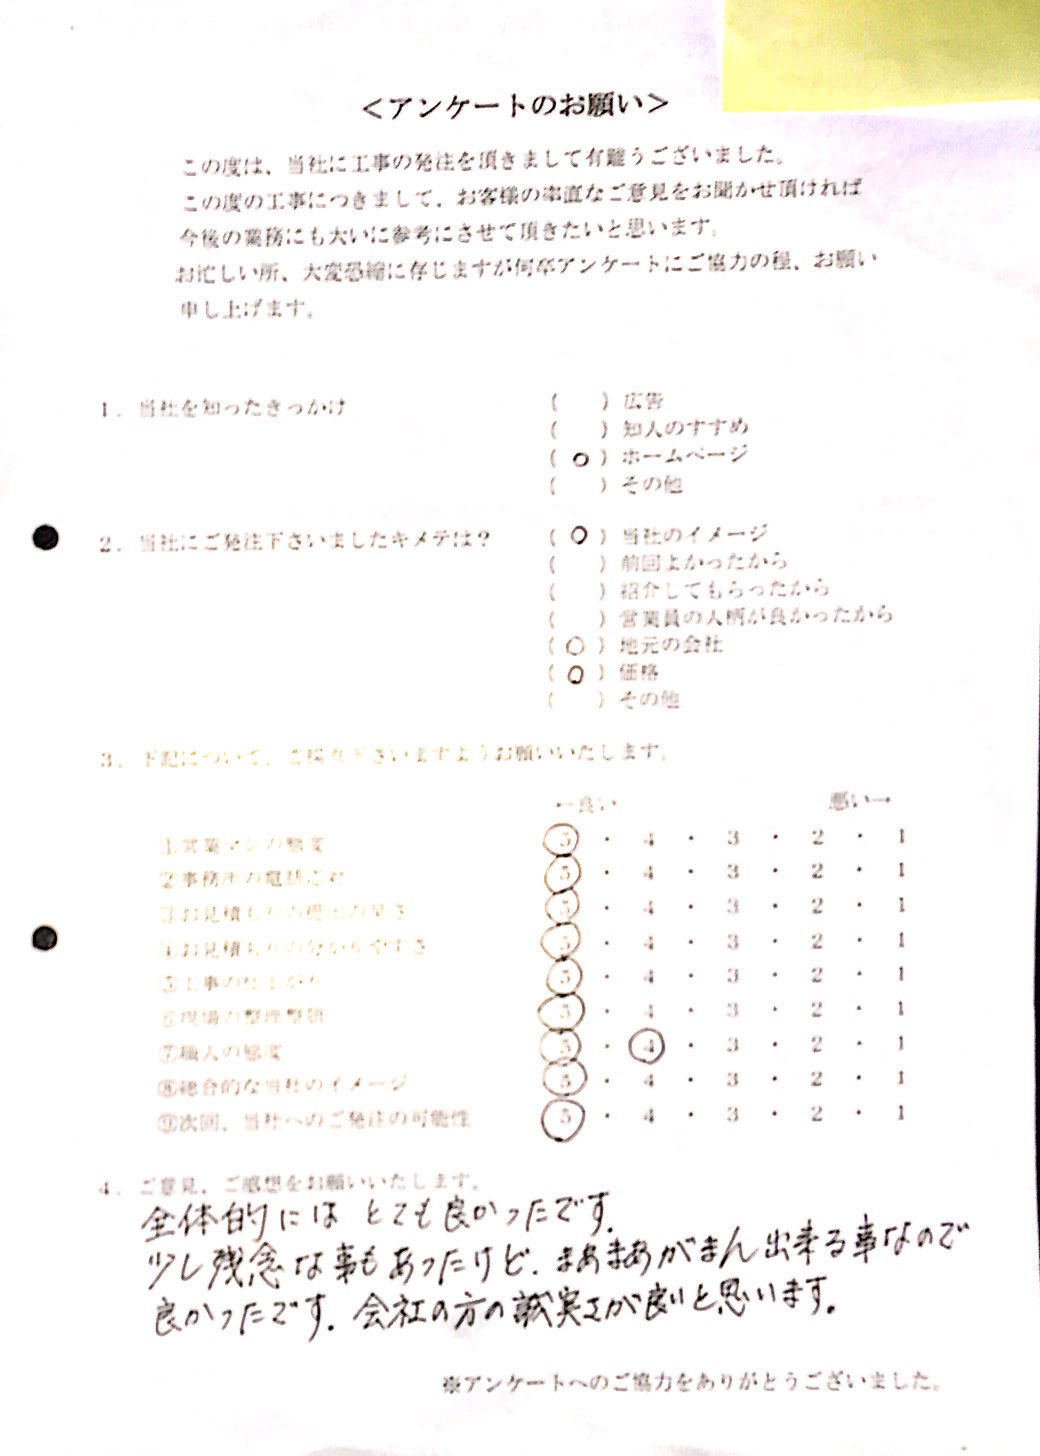 ＜アンケートのお願い＞
この度は、当社に工事の発注を頂きまして有難うございました。
この度の工事につきまして、お客様の率直なご意見をお聞かせ頂ければ
今後の業務にも大いに参考にさせて頂きたいと思います。
お忙しい所、大変恐縮に存じますが何卒アンケートにご協力の程、お願い
申し上げます。
1．当社を知ったきっかけ
（　　）広告
（　　）知人のすすめ
（ ○ ）ホームページ
（　　）その他
2．当社にご発注下さいましたキメテは？
（ ○ ）当社のイメージ
（　　）前回よかったから
（　　）紹介してもらったから
（　　）営業員の人柄が良かったから
（ ○ ）地元の会社
（ ○ ）価格
（　　）その他
3．下記について、ご採点下さいますようお願いいたします。
←良い　悪い→
①営業マンの態度　5 ・ 4 ・ 3 ・ 2 ・ 1
②事務所の電話応対　5 ・ 4 ・ 3 ・ 2 ・ 1
③お見積もりの提出の早さ　5 ・ 4 ・ 3 ・ 2 ・ 1
④お見積もりの分かりやすさ　5 ・ 4 ・ 3 ・ 2 ・ 1
⑤工事の仕上がり　5 ・ 4 ・ 3 ・ 2 ・ 1
⑥現場の整理整頓　5 ・ 4 ・ 3 ・ 2 ・ 1
⑦職人の態度　5 ・ 4 ・ 3 ・ 2 ・ 1
⑧総合的な当社のイメージ　5 ・ 4 ・ 3 ・ 2 ・ 1
⑨次回、当社へのご発注の可能性　5 ・ 4 ・ 3 ・ 2 ・ 1
4．ご意見、ご感想をお願いいたします。
全体的には とても良かったです。
少し残念な事もあったけど、まあまあがまん出来る事なので
良かったです。会社の方の誠実さが良いと思います。
※アンケートへのご協力をありがとうございました。